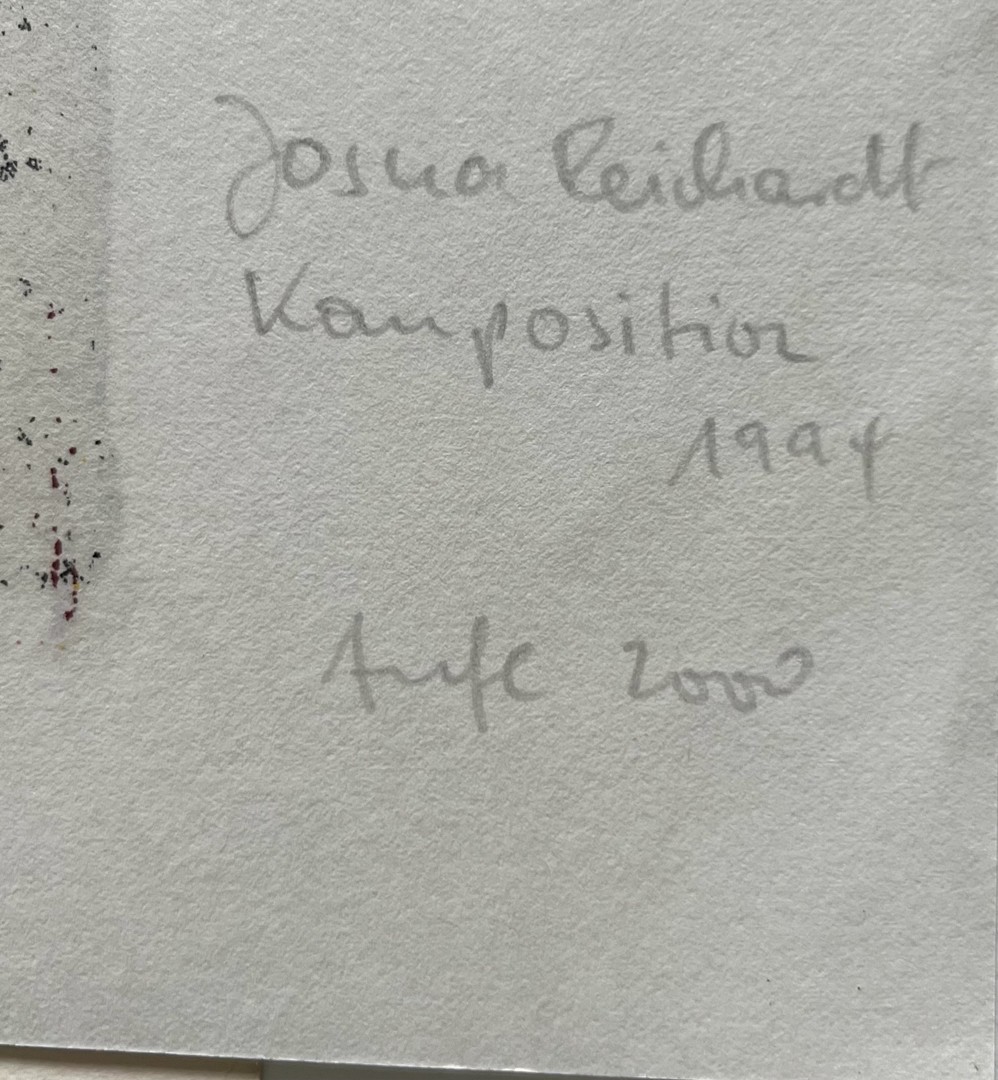 Josua Reichardt
Komposition
1994
Aufl 2000